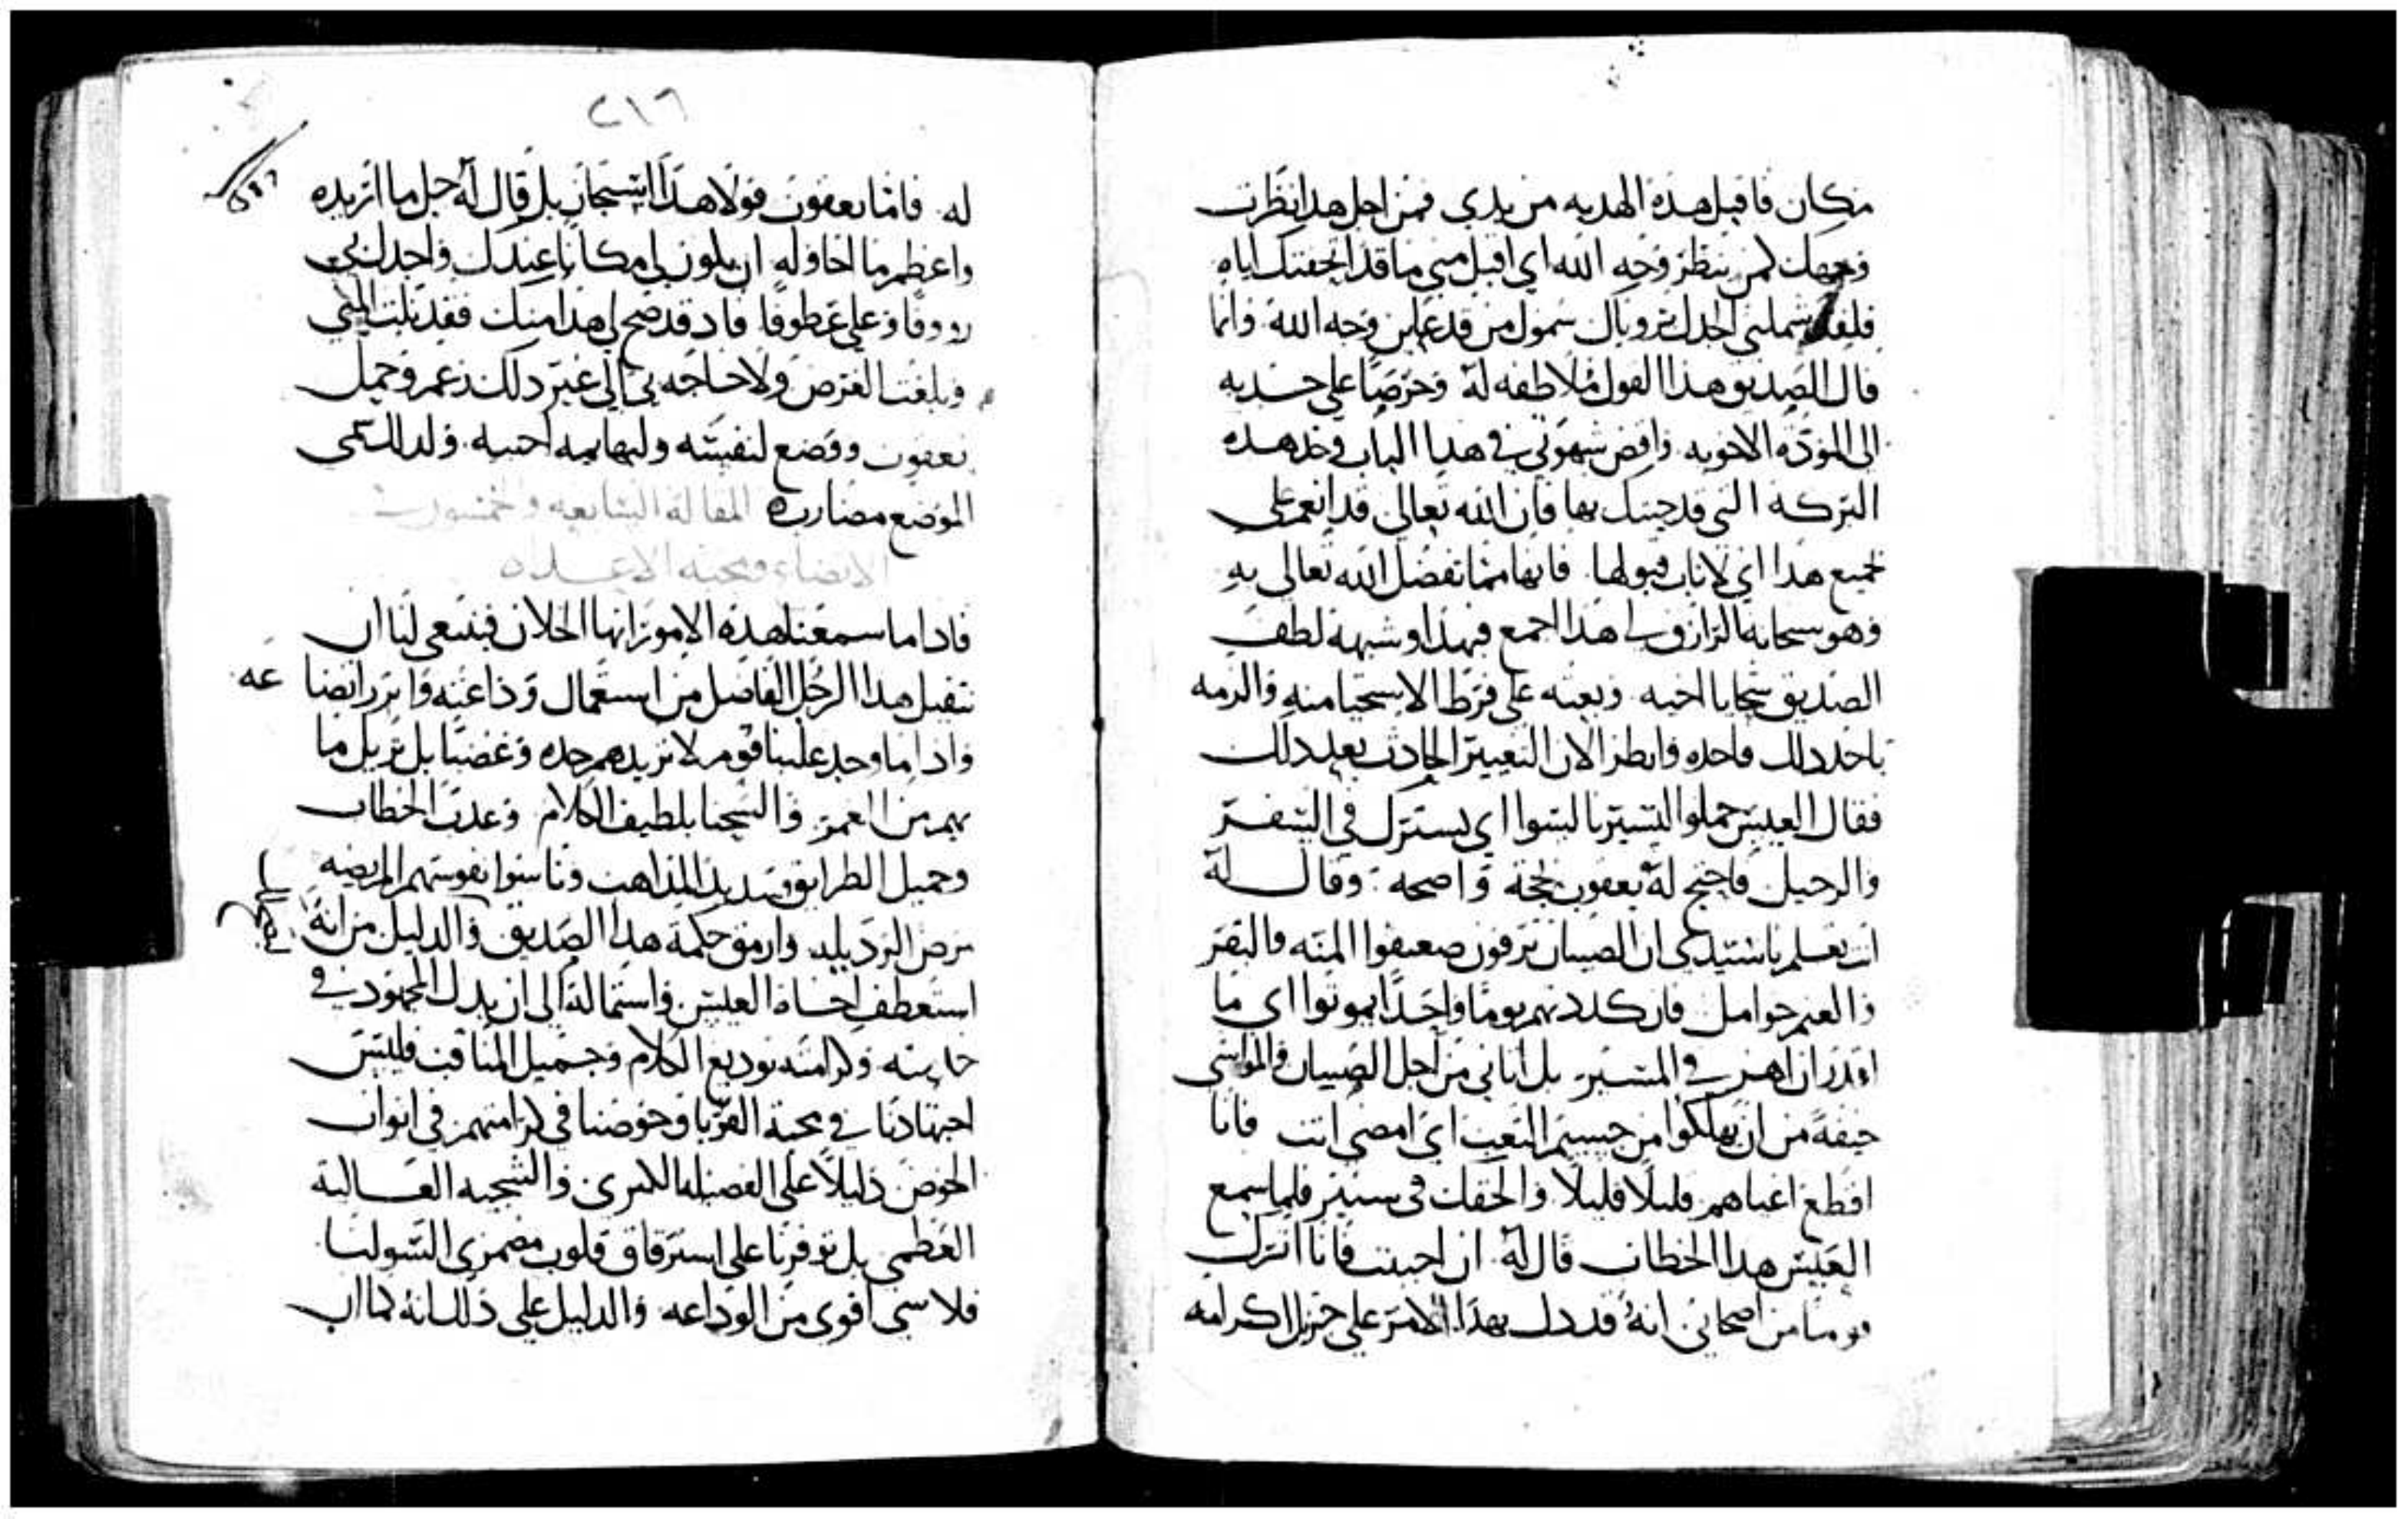 مكان فاقبل هذه الهديه من يدي فمن اجل هذا نظرت
وجهك كمن ينظر وجه الله اي اقبل مني ما قد اتحفتك اياه
فلقد شملني الجدل برؤياك شمول من قد عاين وجه الله وانما
قال الصديق هذا القول ملاطفه له وحرصا على جذبه
الى المودة الاخويه واقض شهوتي في هذا الباب وخذ هذه
البركة التي قد جيتك بها فان الله تعالى قد انعم علي
بجميع هذا اي لا تاب قبولها فانها مما تفضل الله تعالى به
وهو سبحانه الرازق لي هذا اجمع فهذا وشبهه لطف
الصديق سجايا اخيه وبعثه على فرط الاستحيا منه والزمه
باخذ ذلك فاخذه وانظر الان التغيير الحادث بعد ذلك
فقال العيس حملوا لنسير بالسوا اي لنشترك في السفر
والرحيل فاحتج له يعقوب بحجة واضحه وقال له
انت تعلم يا سيدي ان الصبيان ترفون ضعيفوا المنه والبقر
والغنم حوامل فان كددتهم يوما واحدا يموتوا اي ما
اقدر ان اهم في المسير بل اناني من اجل الصبيان والمواشي
خيفة من ان يهلكوا من جسيم التعب اي امضي انت فانا
اقطع اعياهم قليلا قليلا والحقك في سعير فلما سمع
العيس هذا الخطاب قال له ان احببت فانا اترك
قوما من اصحابي انه قد دل بهذا الامر على جزيل اكرامه
٢١٦
له فاما يعقوب فولا هذا استجاز بل قال له جل ما اريده
واعظم ما احاوله ان يكون لي مكانا عندك واجدك بي
رووفا وعلي عطوفا فاذ قد صح لي هذا منك فقد نلت المنى
وبلغت الغرض ولا حاجه بي الى غير ذلك نعم وحمل
يعقوب ووضع لنفسه ولبهايمه اخبيه ولذلك سمى
الموضع مضارب المقالة السابعه وخمسون
الاتضاع ومحبه الاعداء
فاذا ما سمعنا هذه الامور ايها الخلان فينبغي لنا ان
نتقيل هذا الرجل الفاضل من استعمال وداعته وابرر ايضا
واذا ما وجد علينا قوم لا نزيدهم حده وغضبا بل نزيل ما
بهم من الغمر والشحنا بلطيف الكلام وعذب الخطاب
وجميل الطرايق وسديد المذاهب وناسوا نفوسهم المريضه
مرض الرذيله وارمق حكمة هذا الصديق والدليل من انه
استعطف اخاه العيس واستماله الى ان بذل المجهود في
خدمته وكرامته بوديع الكلام وجميل المناقب فليس
اجتهادنا في محبة القربا وخوضنا في كرامتهم في ابواب
الخوض دليلا على الفضيله الكبرى والسجيه العالية
العظمى بل توفرنا على استرقاق قلوب مضمري السو لنا
فلا شي اقوى من الوداعه والدليل على ذلك انه كما ان